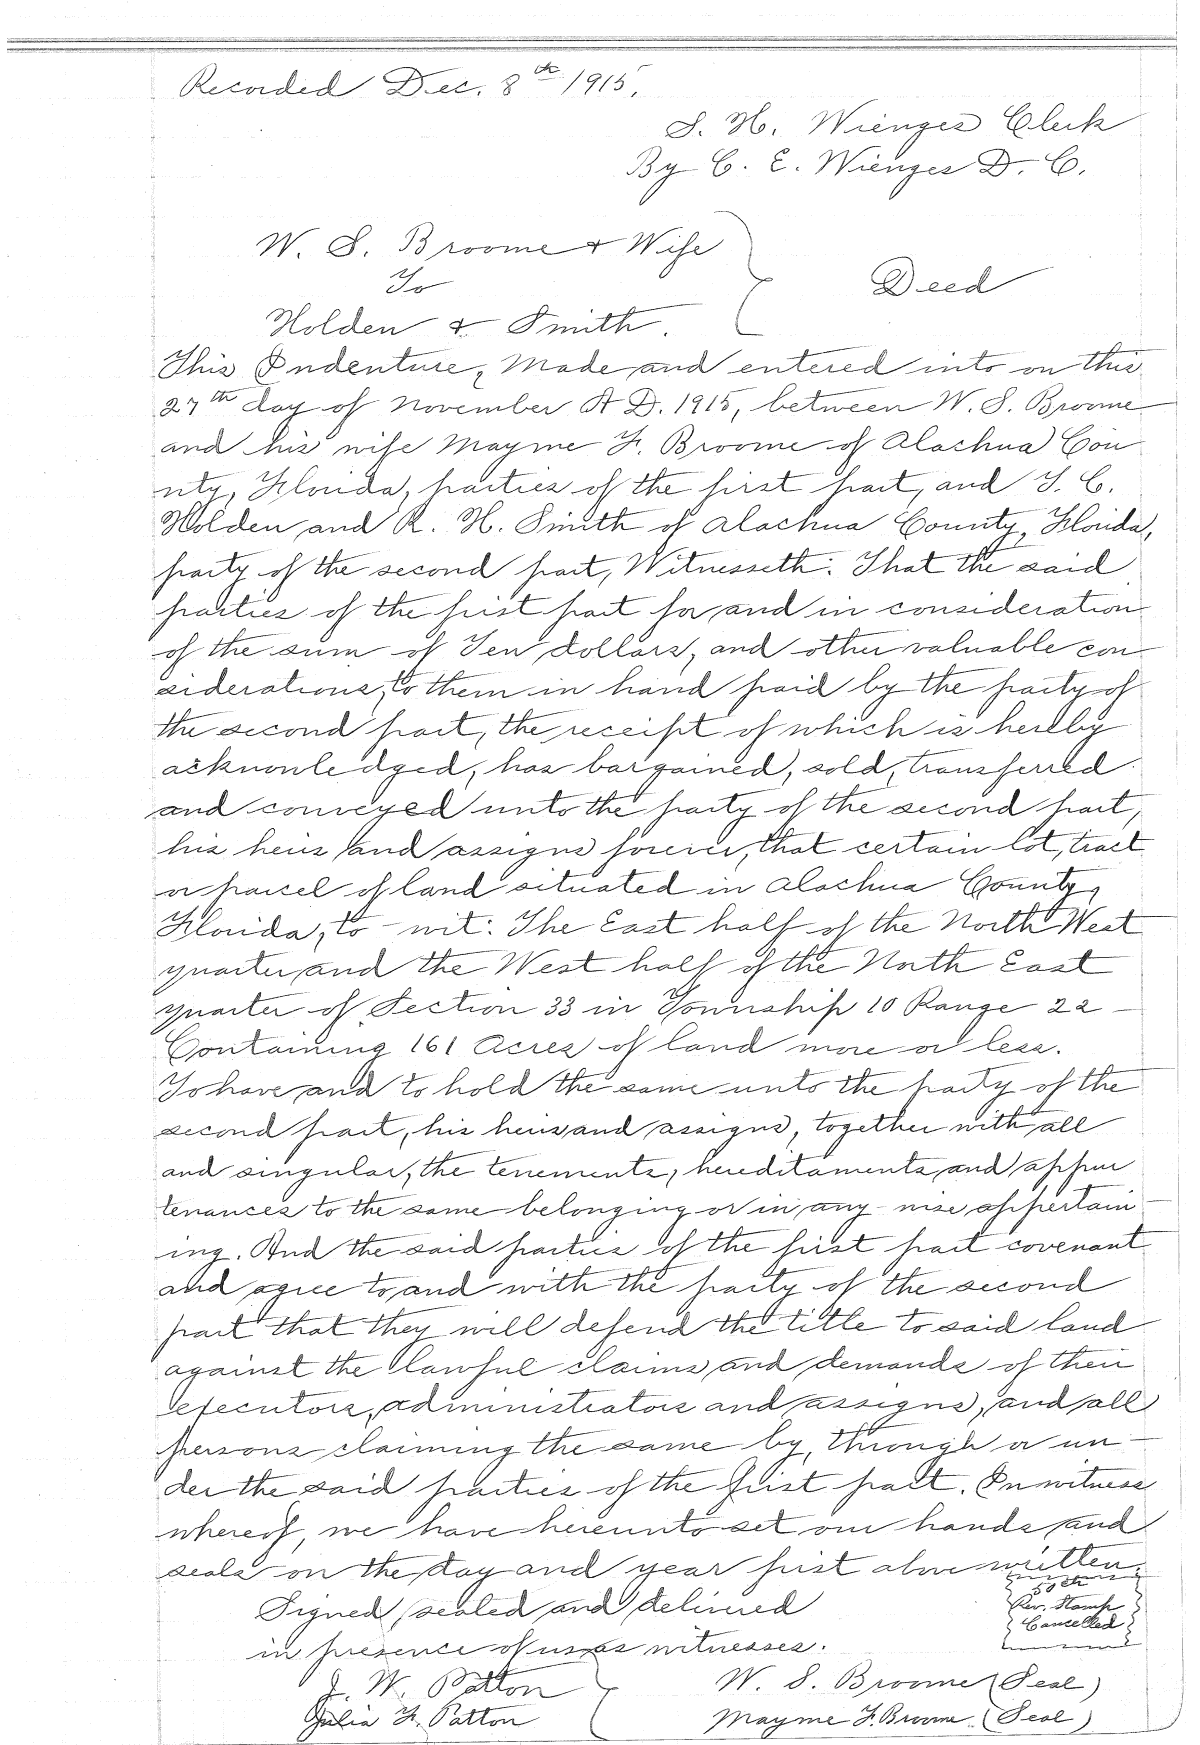 Recorded Dec. 8th 1915,
S. H. Wienges Clerk
By C. E. Wienges D. C.
W. S. Broome & Wife
To
Deed
Holden & Smith.
This Indenture, Made and entered into on this
27th day of November A D. 1915, between W. S. Broome
and his wife Mayme F. Broome of Alachua Cou
nty, Florida, parties of the first part, and
Holden and R. H. Smith of Alachua County, Florida,
party of the second part, Witnesseth: That the said
parties of the first part for and in consideration
of the sum of Ten dollars, and other valuable con-
siderations, to them in hand paid by the party of
the second part, the receipt of which is hereby
acknowledged, has bargained, sold, transferred
and conveyed unto the party of the second part,
his heirs and assigns forever, that certain lot, tract
or parcel of land situated in Alachua County,
Florida, to-wit: The East half of the North West
quarter and the West half of the North East
quarter of Section 33 in Township 10 Range 22 -
Containing 161 Acres of land more or less.
To have and to hold the same unto the party of the
second part, his heirs and assigns, together with all
and singular, the tenements, hereditaments and appur
tenances to the same belonging or in any-wise appertain-
ing. And the said parties of the first part covenant
and agree to and with the party of the second
part that they will defend the title to said land
against the lawful claims and demands of their
executors, administrators and assigns, and all
persons claiming the same by, through or un-
der the said parties of the first part. In witness
whereof, we have hereunto set our hands and
seals on the day and year first above written.
50cts
Rev. Stamp
Cancelled
Signed, sealed and delivered
in presence of us as witnesses.
J. W. Patton
W. S. Broome (Seal)
Julia F. Patton
Mayme F. Broome. (Seal)